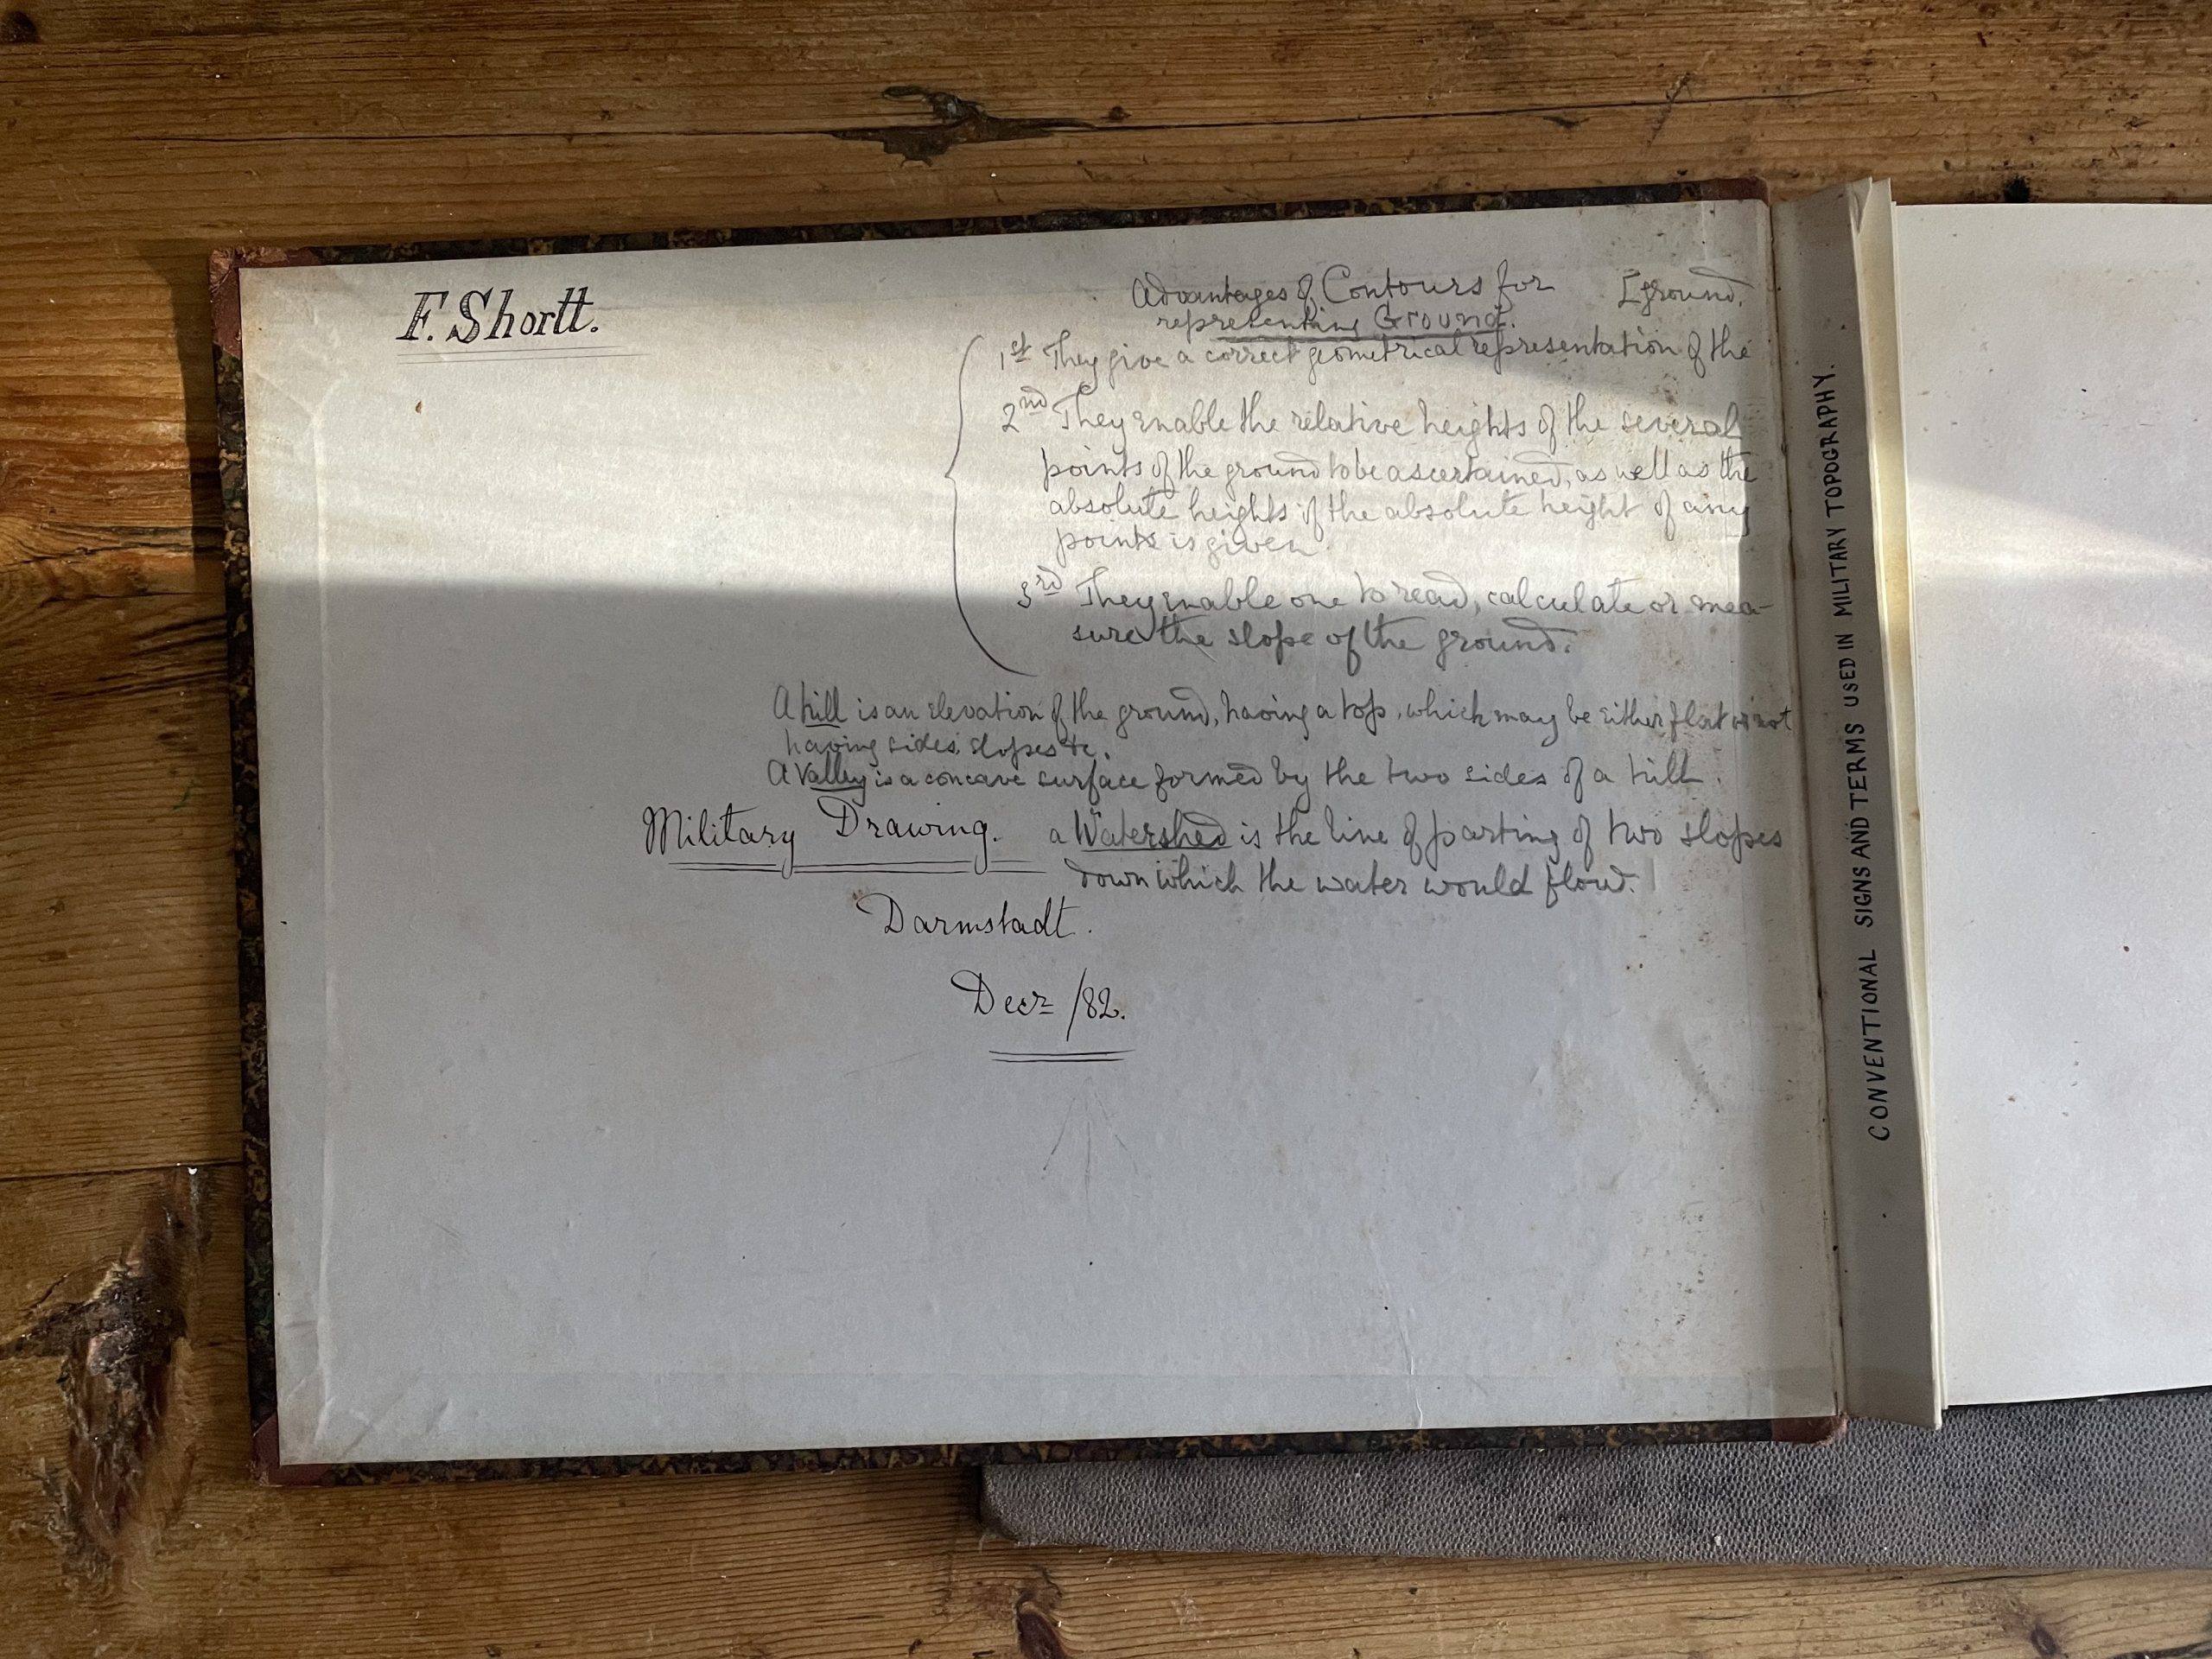 F. Shortt.
Advantages of Contours for [ground.
representing Ground.
1st They give a correct geometrical representation of the
2nd They enable the relative heights of the several
points of the ground to be ascertained, as well as the
absolute heights if the absolute height of any
points is given.
3rd They enable one to read, calculate or mea-
sure the slope of the ground.
A hill is an elevation of the ground, having a top, which may be either flat or not
having sides, slopes &c.
A Valley is a concave surface formed by the two sides of a hill.
Military Drawing.
a Watershed is the line of parting of two slopes
down which the water would flow.
Darmstadt.
Decr /82.
CONVENTIONAL SIGNS AND TERMS USED IN MILITARY TOPOGRAPHY.